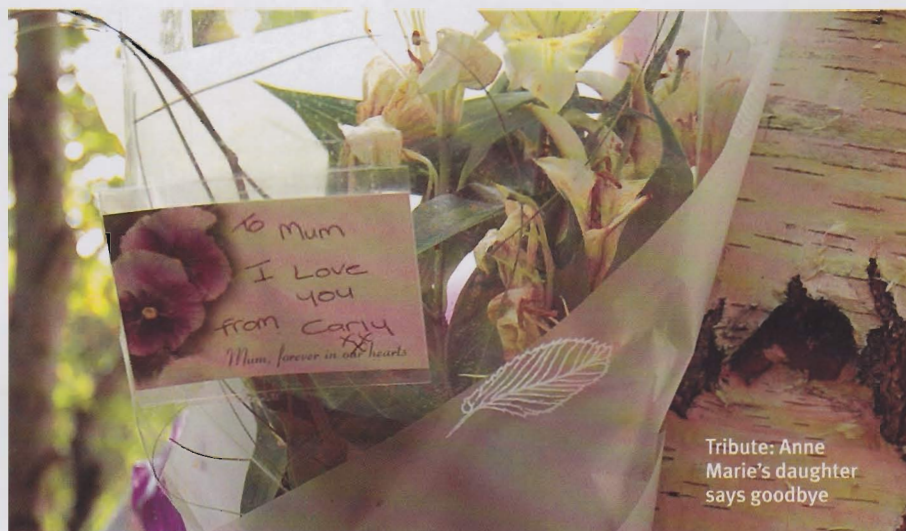 To Mum
I Love
you
from Carly
xx
Mum, forever in our hearts
Tribute: Anne
Marie's daughter
says goodbye